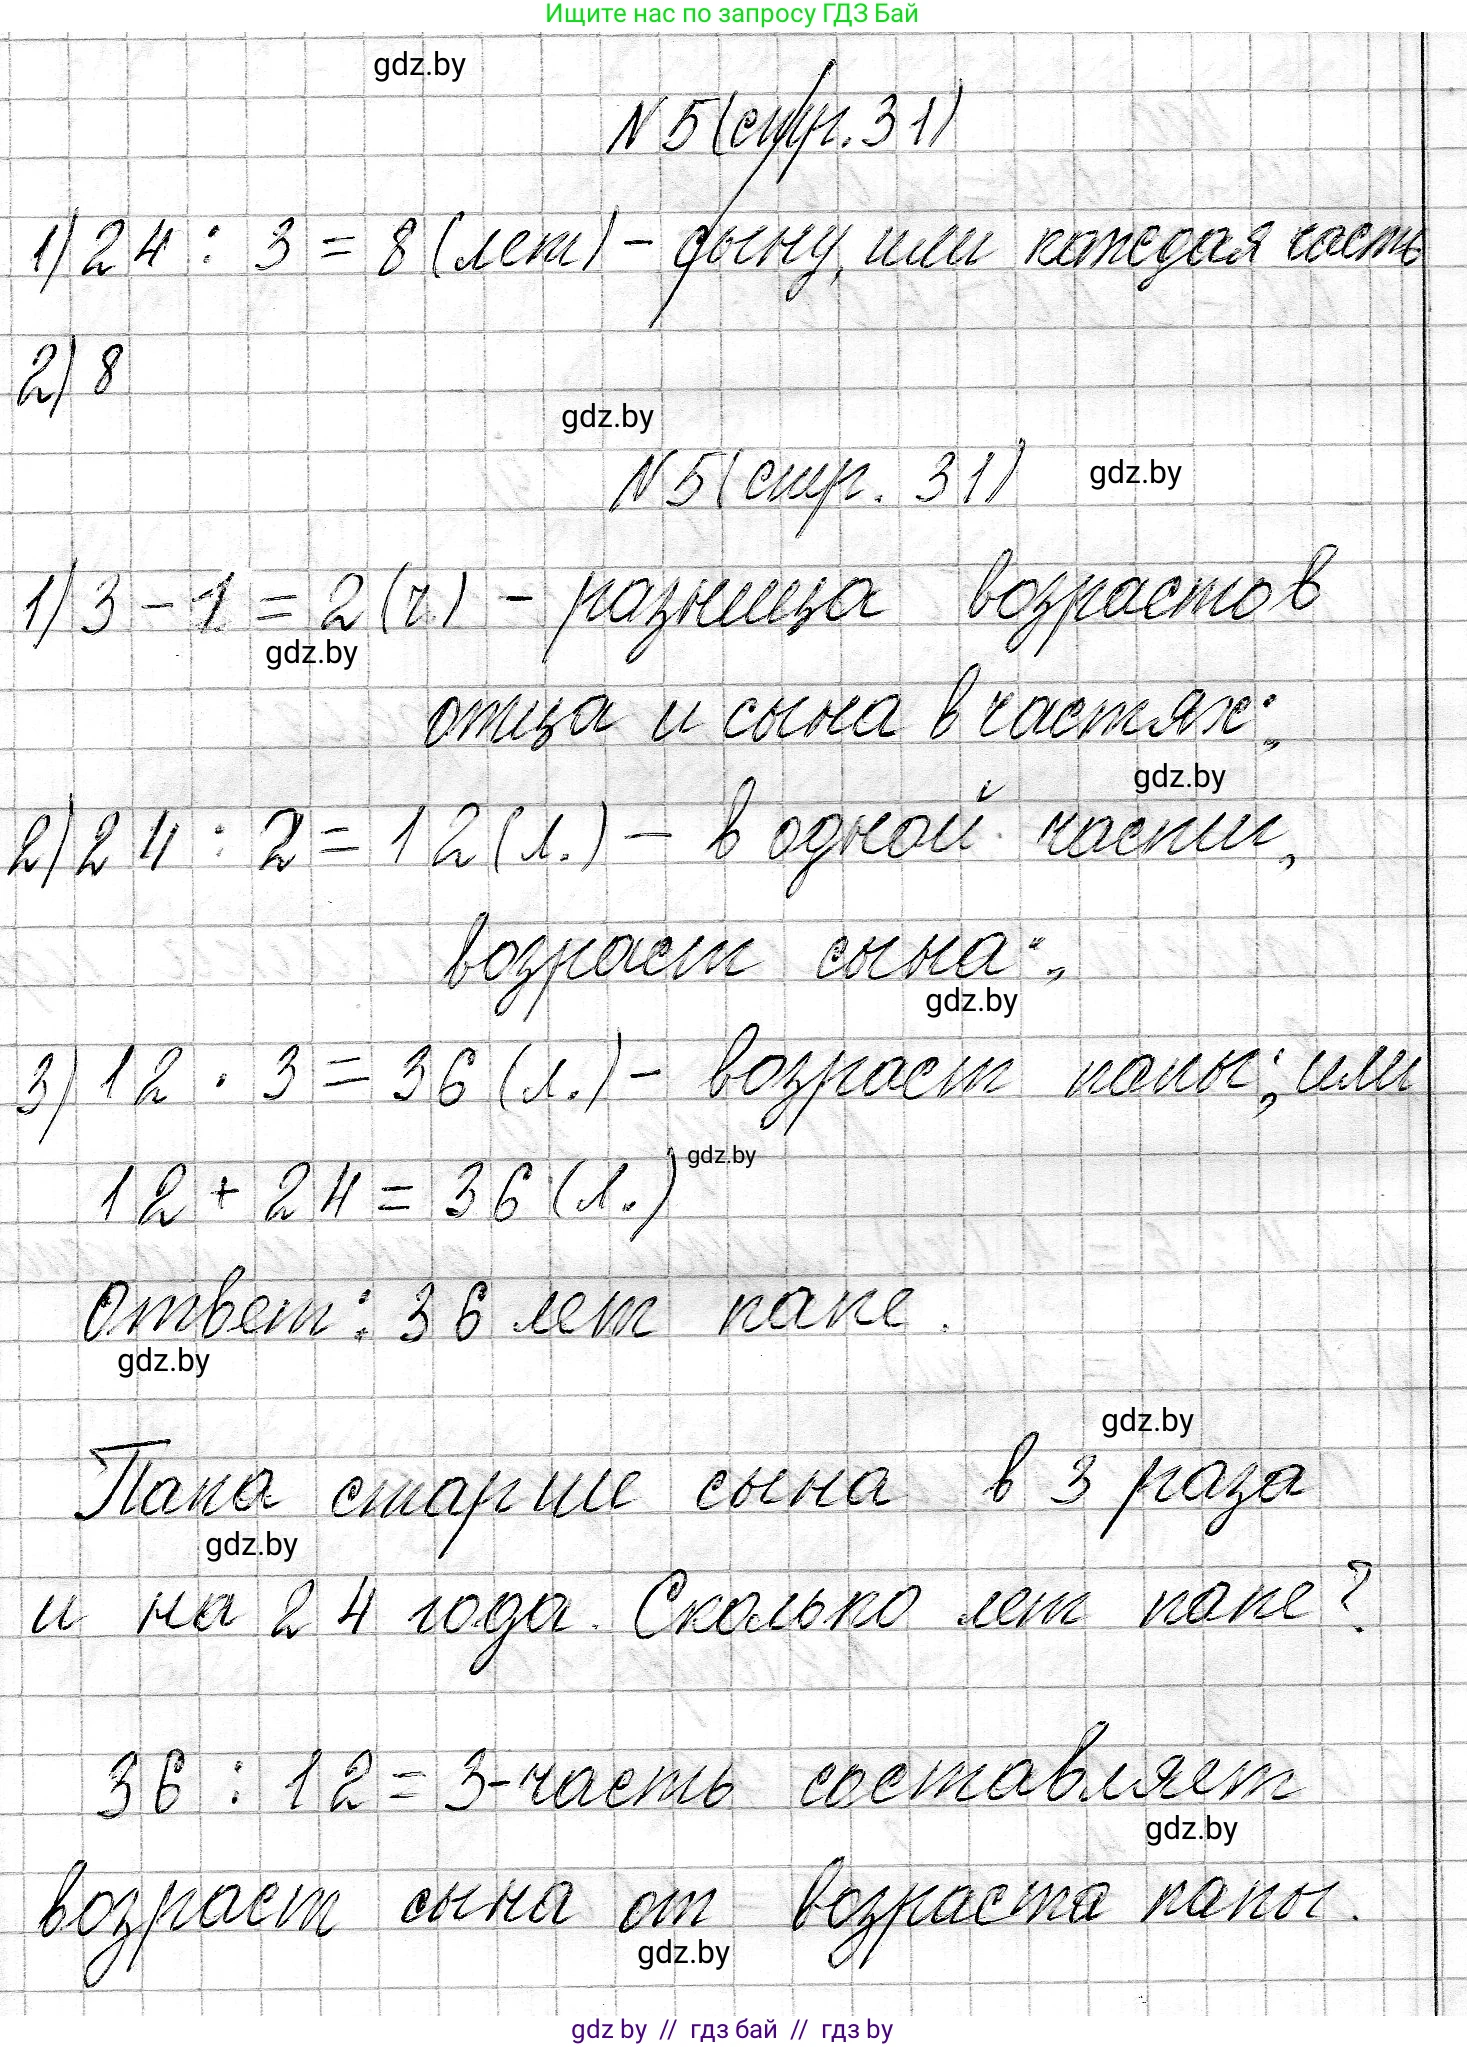 Ищите нас по запросу ГДЗ Бай
gdz.by
N 5 (стр. 31)
1) 24 : 3 = 8 (лет) - сыну, или каждая часть
2) 8
gdz.by
N 5 (стр. 31)
gdz.by
1) 3 - 1 = 2 (ч.) - разница возрастов
gdz.by
отца и сына в частях;
gdz.by
2) 24 : 2 = 12 (л.) - в одной части,
возраст сына;
gdz.by
3) 12 · 3 = 36 (л.) - возраст папы; или
gdz.by
12 + 24 = 36 (л.)
Ответ: 36 лет папе.
gdz.by
gdz.by
Папа старше сына в 3 раза
gdz.by
и на 24 года. Сколько лет папе?
36 : 12 = 3 - часть составляет
gdz.by
возраст сына от возраста папы.
gdz.by
gdz by // гдз бай // гдз by